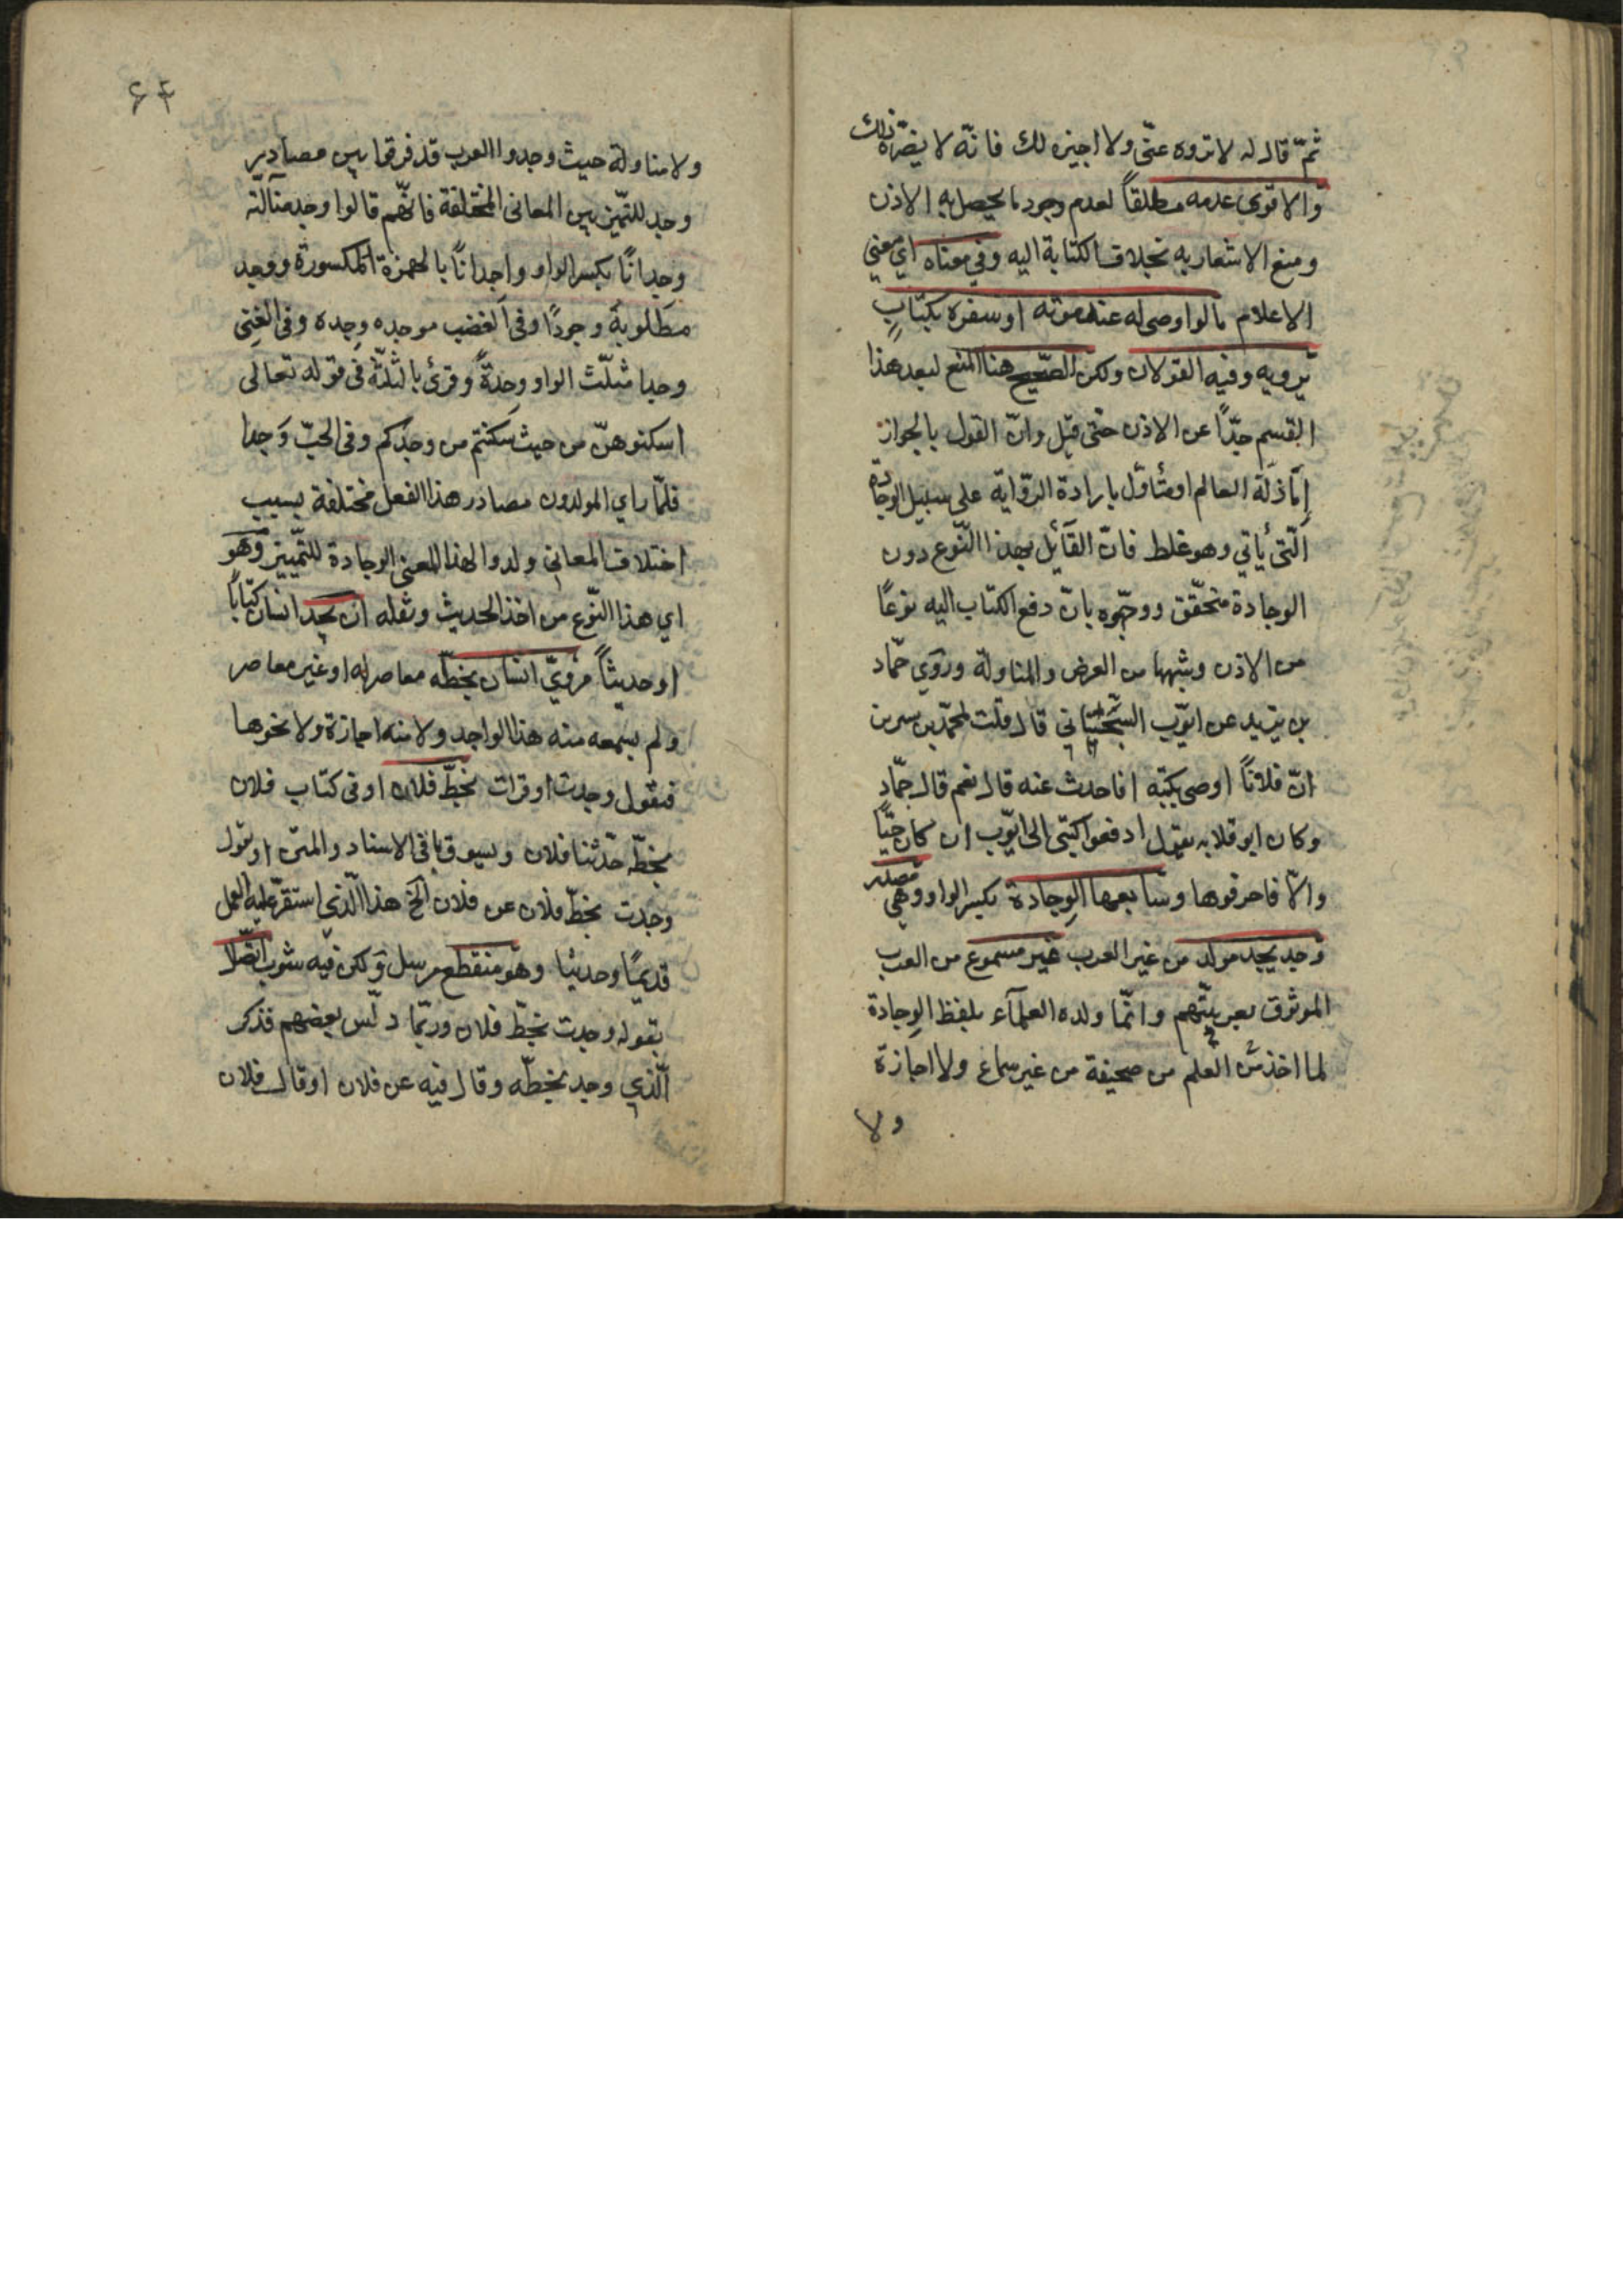 ثمّ قال له لا تروه عنّي ولا اجيزه لك فانّه لا يضرّه ذلك
والاقوى عدمه مطلقاً لعدم وجود ما يحصل به الاذن
ومنع الاشعار به بخلاف الكتابة اليه وفي معناه اي معني
الاعلام ما لو اوصي له عند موته او سفره بكتابٍ
يرويه وفيه القولان ولكن الصّحيح هنا المنع لبعد هذا
القسم جدّاً عن الاذن حتّى قيل وانّ القول بالجواز
إمّا زلّة العالم او متأوّل بارادة الرّواية على سبيل الوجادة
الّتي يأتي وهو غلط فانّ القآئل بهذا النّوع دون
الوجادة متحقّق ووجّهوه بانّ دفع الكتاب اليه نوعًا
من الاذن وشبهها من العرض والمناولة وروي حمّاد
بن يزيد عن ايّوب السّختياني قال قلت لمحمّد بن سيرين
انّ فلاناً اوصى بكتبه افاحدث عنه قال نعم قال حمّاد
وكان ابو قلابه يقول ادفعوا كتبي الى ايّوب ان كان حيّاً
والّا فاحرقوها وسابعها الوِجادة بكسر الواو وهي مصدر
وجد يجد مولد من غير العرب غير مسموع من العرب
الموثوق بعربيّتهم وانّما ولده العلمآء بلفظ الوِجادة
لما اخذ من العلم من صحيفة من غير سماع ولا اجازة
ولا
۶۴
ولا مناولة حيث وجدوا العرب قد فرقوا بين مصادير
وجد للتّميز بين المعاني المختلفة فانّهم قالوا وجد ضآلته
وجدانًا بكسر الواو واجدانًا بالهمزة المكسورة ووجد
مطلوبة وجودًا وفي الغضب موجده وجده وفي الغِنى
وجدا مثلّث الواو وجدةً وقرئ بالثلثة في قوله تعالى
اسكنوهنّ من حيث سكنتم من وجدكم وفي الحبّ وَجدا
فلمّا راي المولدون مصادر هذا الفعل مختلفة بسبب
اختلاف المعاني ولدوا لهذا المعنى الوجادة للتّمييز وهو
اي هذا النّوع من اخذ الحديث ونقله ان يجد انسان كتاباً
او حديثاً مرويّ انسان بخطّه معاصر له او غير معاصر
ولم يسمعه منه هذا الواجد ولا منه اجازة ولا نحوها
فيقول وجدت او قرات بخطّ فلان او في كتاب فلان
بخطّه حدّثنا فلان ويسوق باقي الاسناد والمتن او يقول
وجدت بخطّ فلان عن فلان الخ هذا الّذي استقرّ عليه العمل
قديمًا وحديثا وهو منقطع مرسل ولكن فيه شوب اتّصال
بقوله وجدت بخطّ فلان وربّما دلّس بعضهم فذكر
الّذي وجد بخطّه وقال فيه عن فلان او قال فلان